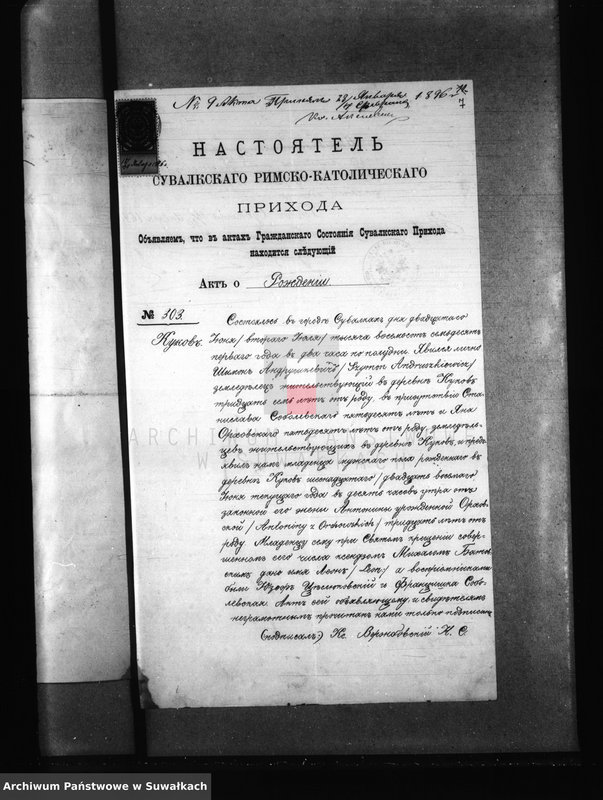 № 9 Акта Принят 28 Января 1896
НАСТОЯТЕЛЬ
СУВАЛКСКАГО РИМСКО-КАТОЛИЧЕСКАГО
ПРИХОДА
Объявляем, что въ актахъ Гражданскаго Состоянія Сувалкскаго Прихода
находится слѣдующій
Актъ о Рожденіи
№ 303.
Куковъ.
Состоялось въ городѣ Сувалкахъ дня двадцатаго
Іюня /втораго Іюля/ тысяча восемьсотъ семьдесятъ
перваго года въ два часа по полудни. Явился лично
Шимонъ Андрушкевичъ /Szymon Andruszkiewicz/
земледѣлецъ жительствующій въ деревнѣ Куковъ
тридцать семь лѣтъ отъ роду, въ присутствіи Ста-
нислава Соболевскаго пятьдесятъ лѣтъ и Яна
Ораховскаго пятьдесятъ лѣтъ отъ роду, земледѣль-
цевъ жительствующихъ въ деревнѣ Куковъ, и предъ
явилъ намъ младенца мужскаго пола рожденнаго въ
деревнѣ Куковъ шенадцатаго /двадцать восьмаго
Іюня текущаго года въ десять часовъ утра отъ
законной его жены Антонины урожденной Орахов-
ской /Antoniny z Orachowskich/ тридцать лѣтъ отъ
роду. Младенцу сему при Святомъ крещеніи совер-
шенномъ сего числа ксендзомъ Михаломъ
дано имя Леонъ /Leon/ а воспріемниками
были Юзефъ и Францишка Собо-
левская. Актъ сей объявляющему и свидѣтелямъ
неграмотнымъ прочитанъ нами только подписанъ
(подписалъ:) Кс. К. С.
ARCHIWUM PAŃSTWOWE
W SUWAŁKACH
Archiwum Państwowe w Suwałkach